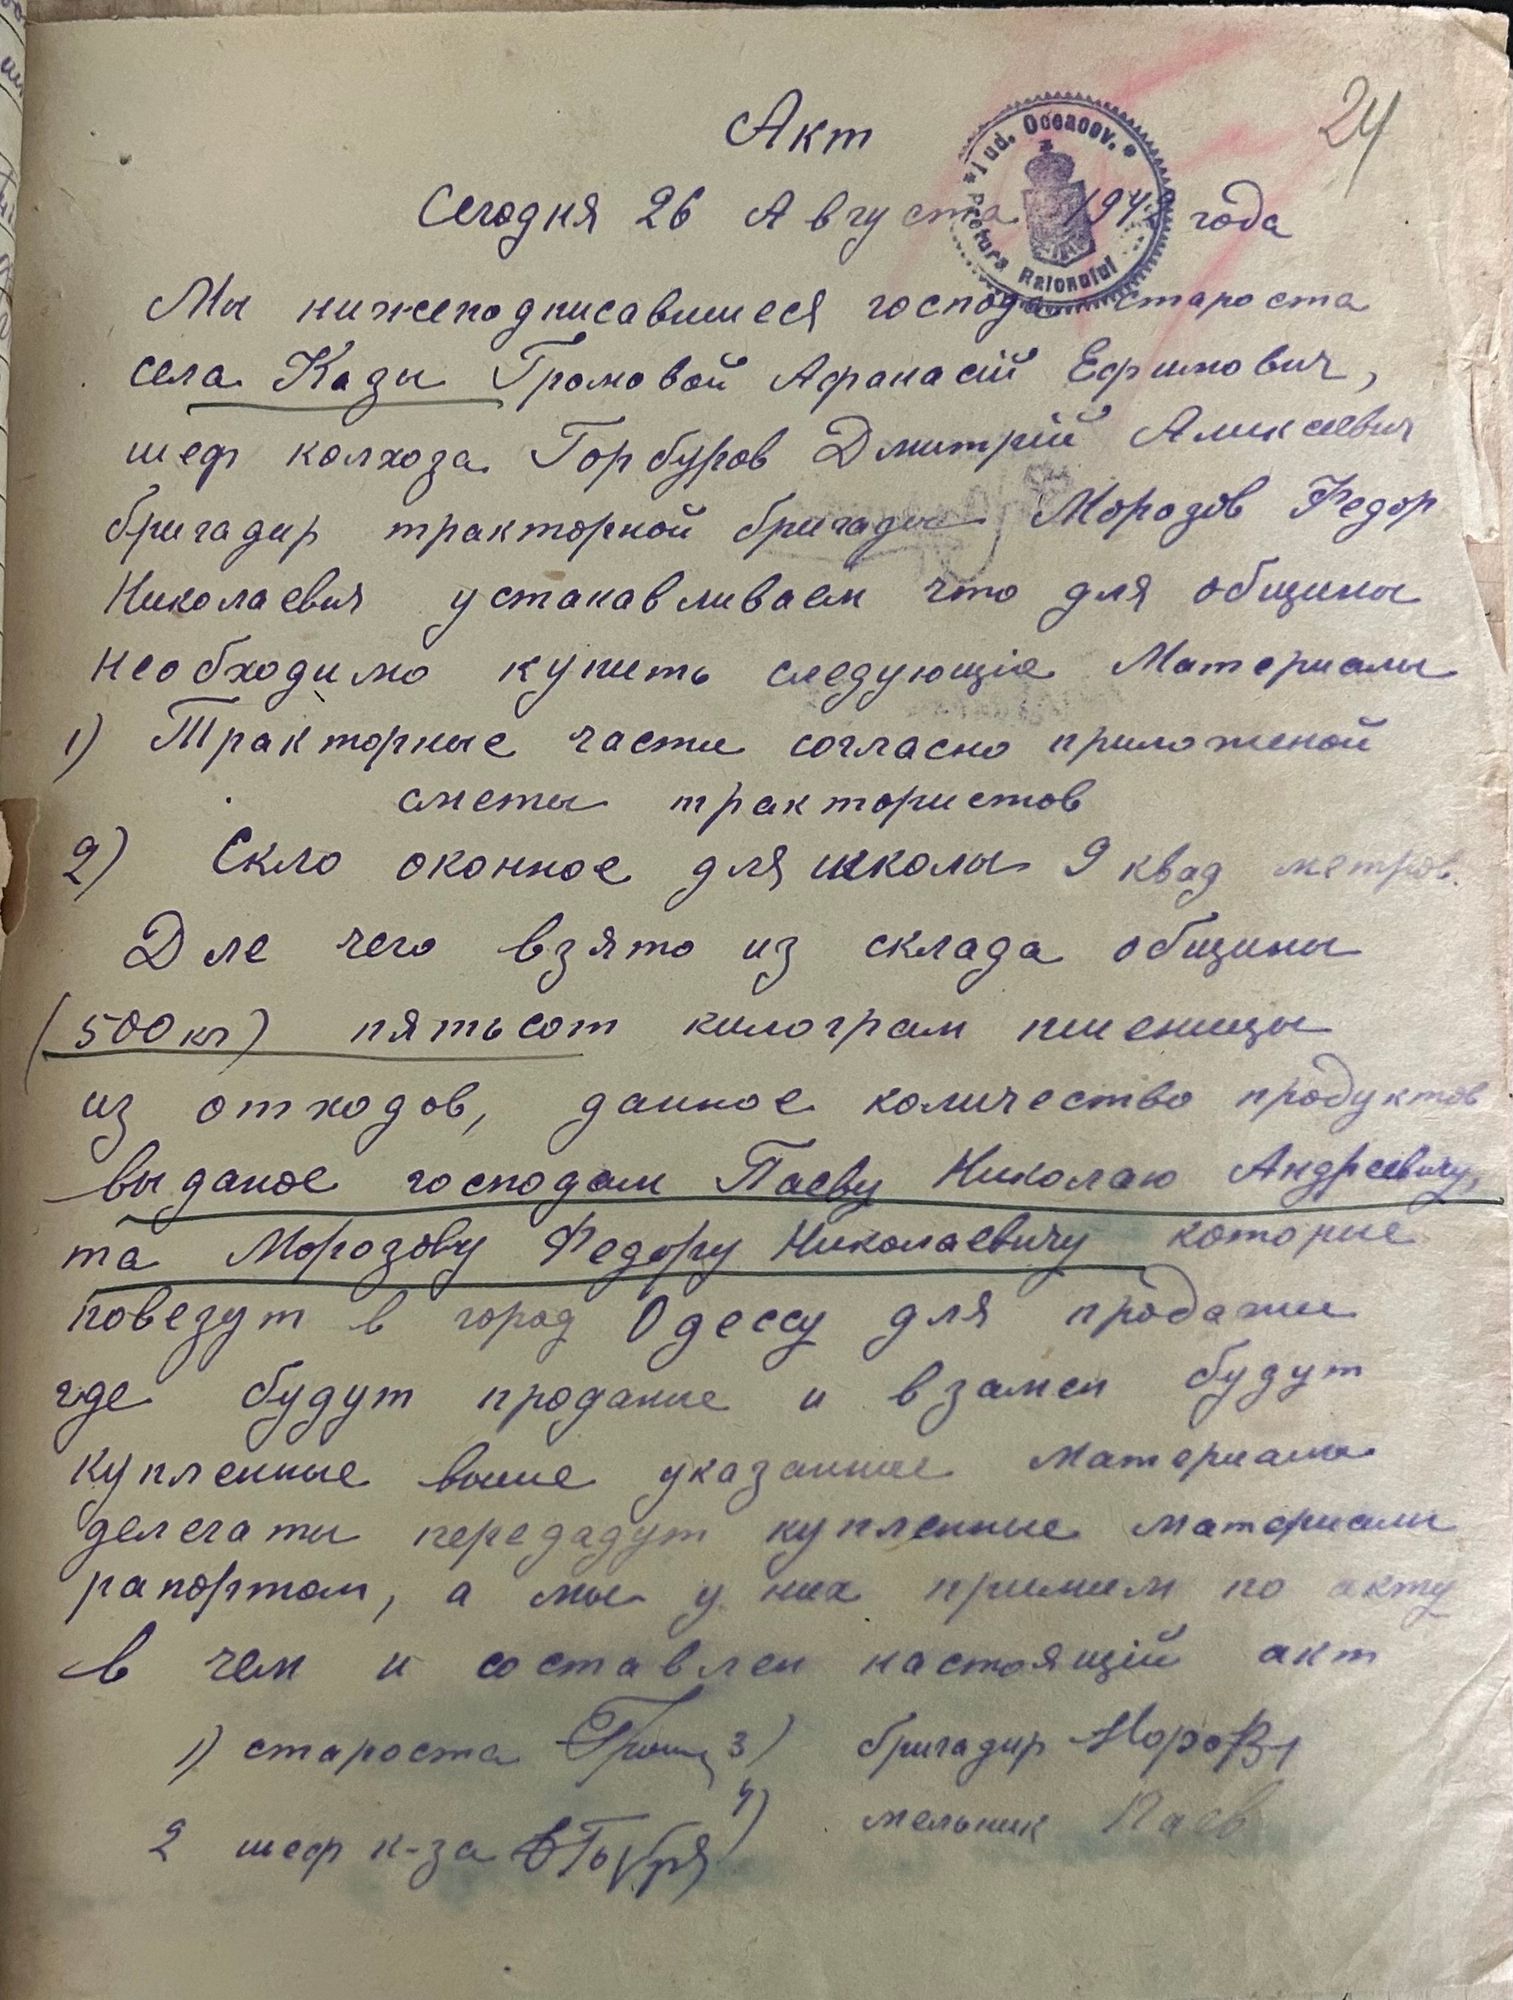 24
Акт
* Jud. Oceacov. *
Pretura Raionului
Сегодня 26 Августа 194 года
Мы нижеподписавшиеся господа староста
села Кадзы Громовой Афанасій Ефимович,
шеф колхоза Горбуров Дмитрій Аликсеевич
бригадир тракторной бригады Морозов Федор
Николаевич устанавливаем что для общины
необходимо купить следующіе Материалы
1) Тракторные части согласно приложеной
сметы трактористов
2) Скло оконное для школы 9 квад метров.
Дле чего взято из склада общины
(500 кг) пятьсот килограм пшеницы
из отходов, данное количество продуктов
выданое господам Паеву Николаю Андреевичу,
та Морозову Федору Николаевичу которые
повезут в город Одессу для продажи
где будут проданые и взамен будут
купленные выше указанные материалы
делегаты передадут купленные материалы
рапортом, а мы у них примим по акту
в чем и составлен настоящій акт
1) староста Гром 3) бригадир Мороз
2 шеф к-за 4) мельник Паев